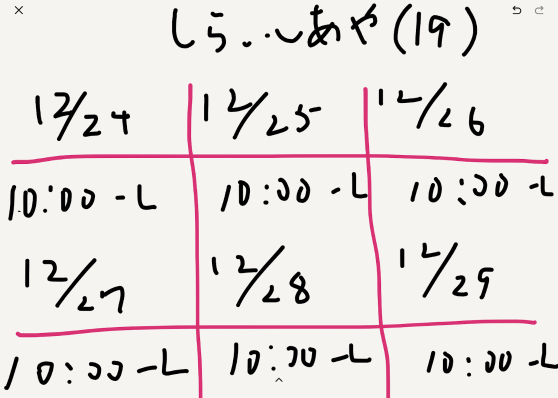 しらいしあや(19)
12/24 12/25 12/26
10:00-L 10:00-L 10:00-L
12/27 12/28 12/29
10:00-L 10:00-L 10:00-L